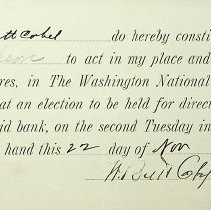 do hereby consti
to act in my place and
res, in The Washington National
at an election to be held for direc
id bank, on the second Tuesday in
hand this 22 day of Nov